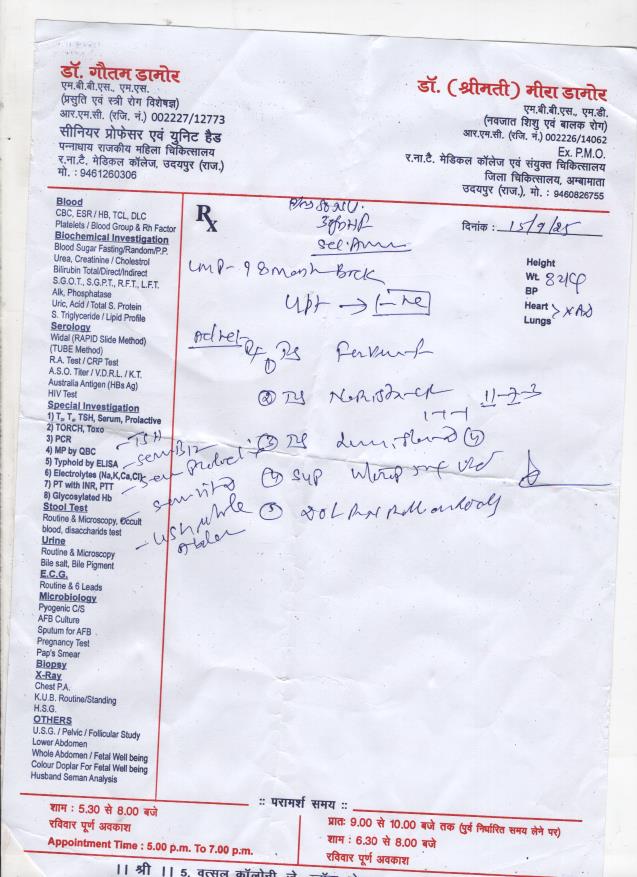 डॉ. गौतम डामोर
एम.बी.बी.एस., एम.एस.
(प्रसुति एवं स्त्री रोग विशेषज्ञ)
आर.एम.सी. (रजि. नं.) 002227/12773
सीनियर प्रोफेसर एवं युनिट हैड
पन्नाधाय राजकीय महिला चिकित्सालय
र.ना.टै. मेडिकल कॉलेज, उदयपुर (राज.)
मो. : 9461260306
डॉ. (श्रीमती) मीरा डामोर
एम.बी.बी.एस., एम.डी.
(नवजात शिशु एवं बालक रोग)
आर.एम.सी. (रजि. नं.) 002226/14062
Ex. P.M.O.
र.ना.टै. मेडिकल कॉलेज एवं संयुक्त चिकित्सालय
जिला चिकित्सालय, अम्बामाता
उदयपुर (राज.), मो. : 9460826755
Blood
CBC, ESR / HB, TCL, DLC
Platelets / Blood Group & Rh Factor
Biochemical Investigation
Blood Sugar Fasting/Random/P.P.
Urea, Creatinine / Cholestrol
Bilirubin Total/Direct/Indirect
S.G.O.T., S.G.P.T., R.F.T., L.F.T.
Alk, Phosphatase
Uric, Acid / Total S. Protein
S. Triglyceride / Lipid Profile
Serology
Widal (RAPID Slide Method)
(TUBE Method)
R.A. Test / CRP Test
A.S.O. Titer / V.D.R.L. / K.T.
Australia Antigen (HBs Ag)
HIV Test
Special Investigation
1) T₃ T₄ TSH, Serum, Prolactive
2) TORCH, Toxo
3) PCR
4) MP by QBC
5) Typhoid by ELISA
6) Electrolytes (Na,K,Ca,Cl)
7) PT with INR, PTT
8) Glycosylated Hb
Stool Test
Routine & Microscopy, Occult
blood, disaccharids test
Urine
Routine & Microscopy
Bile salt, Bile Pigment
E.C.G.
Routine & 6 Leads
Microbiology
Pyogenic C/S
AFB Culture
Sputum for AFB
Pregnancy Test
Pap's Smear
Biopsy
X-Ray
Chest P.A.
K.U.B. Routine/Standing
H.S.G.
OTHERS
U.S.G. / Pelvic / Follicular Study
Lower Abdomen
Whole Abdomen / Fetal Well being
Colour Doplar For Fetal well being
Husband Seman Analysis
Rx
दिनांक : 15/9/25
Height
Wt.
BP
Heart
Lungs
LMP -
UPT → -ve
①
②
1-1-1
③
④ Syp
⑤
- TSH
:: परामर्श समय ::
शाम : 5.30 से 8.00 बजे
रविवार पूर्ण अवकाश
Appointment Time : 5.00 p.m. To 7.00 p.m.
प्रातः 9.00 से 10.00 बजे तक (पुर्व निर्धारित समय लेने पर)
शाम : 6.30 से 8.00 बजे
रविवार पूर्ण अवकाश